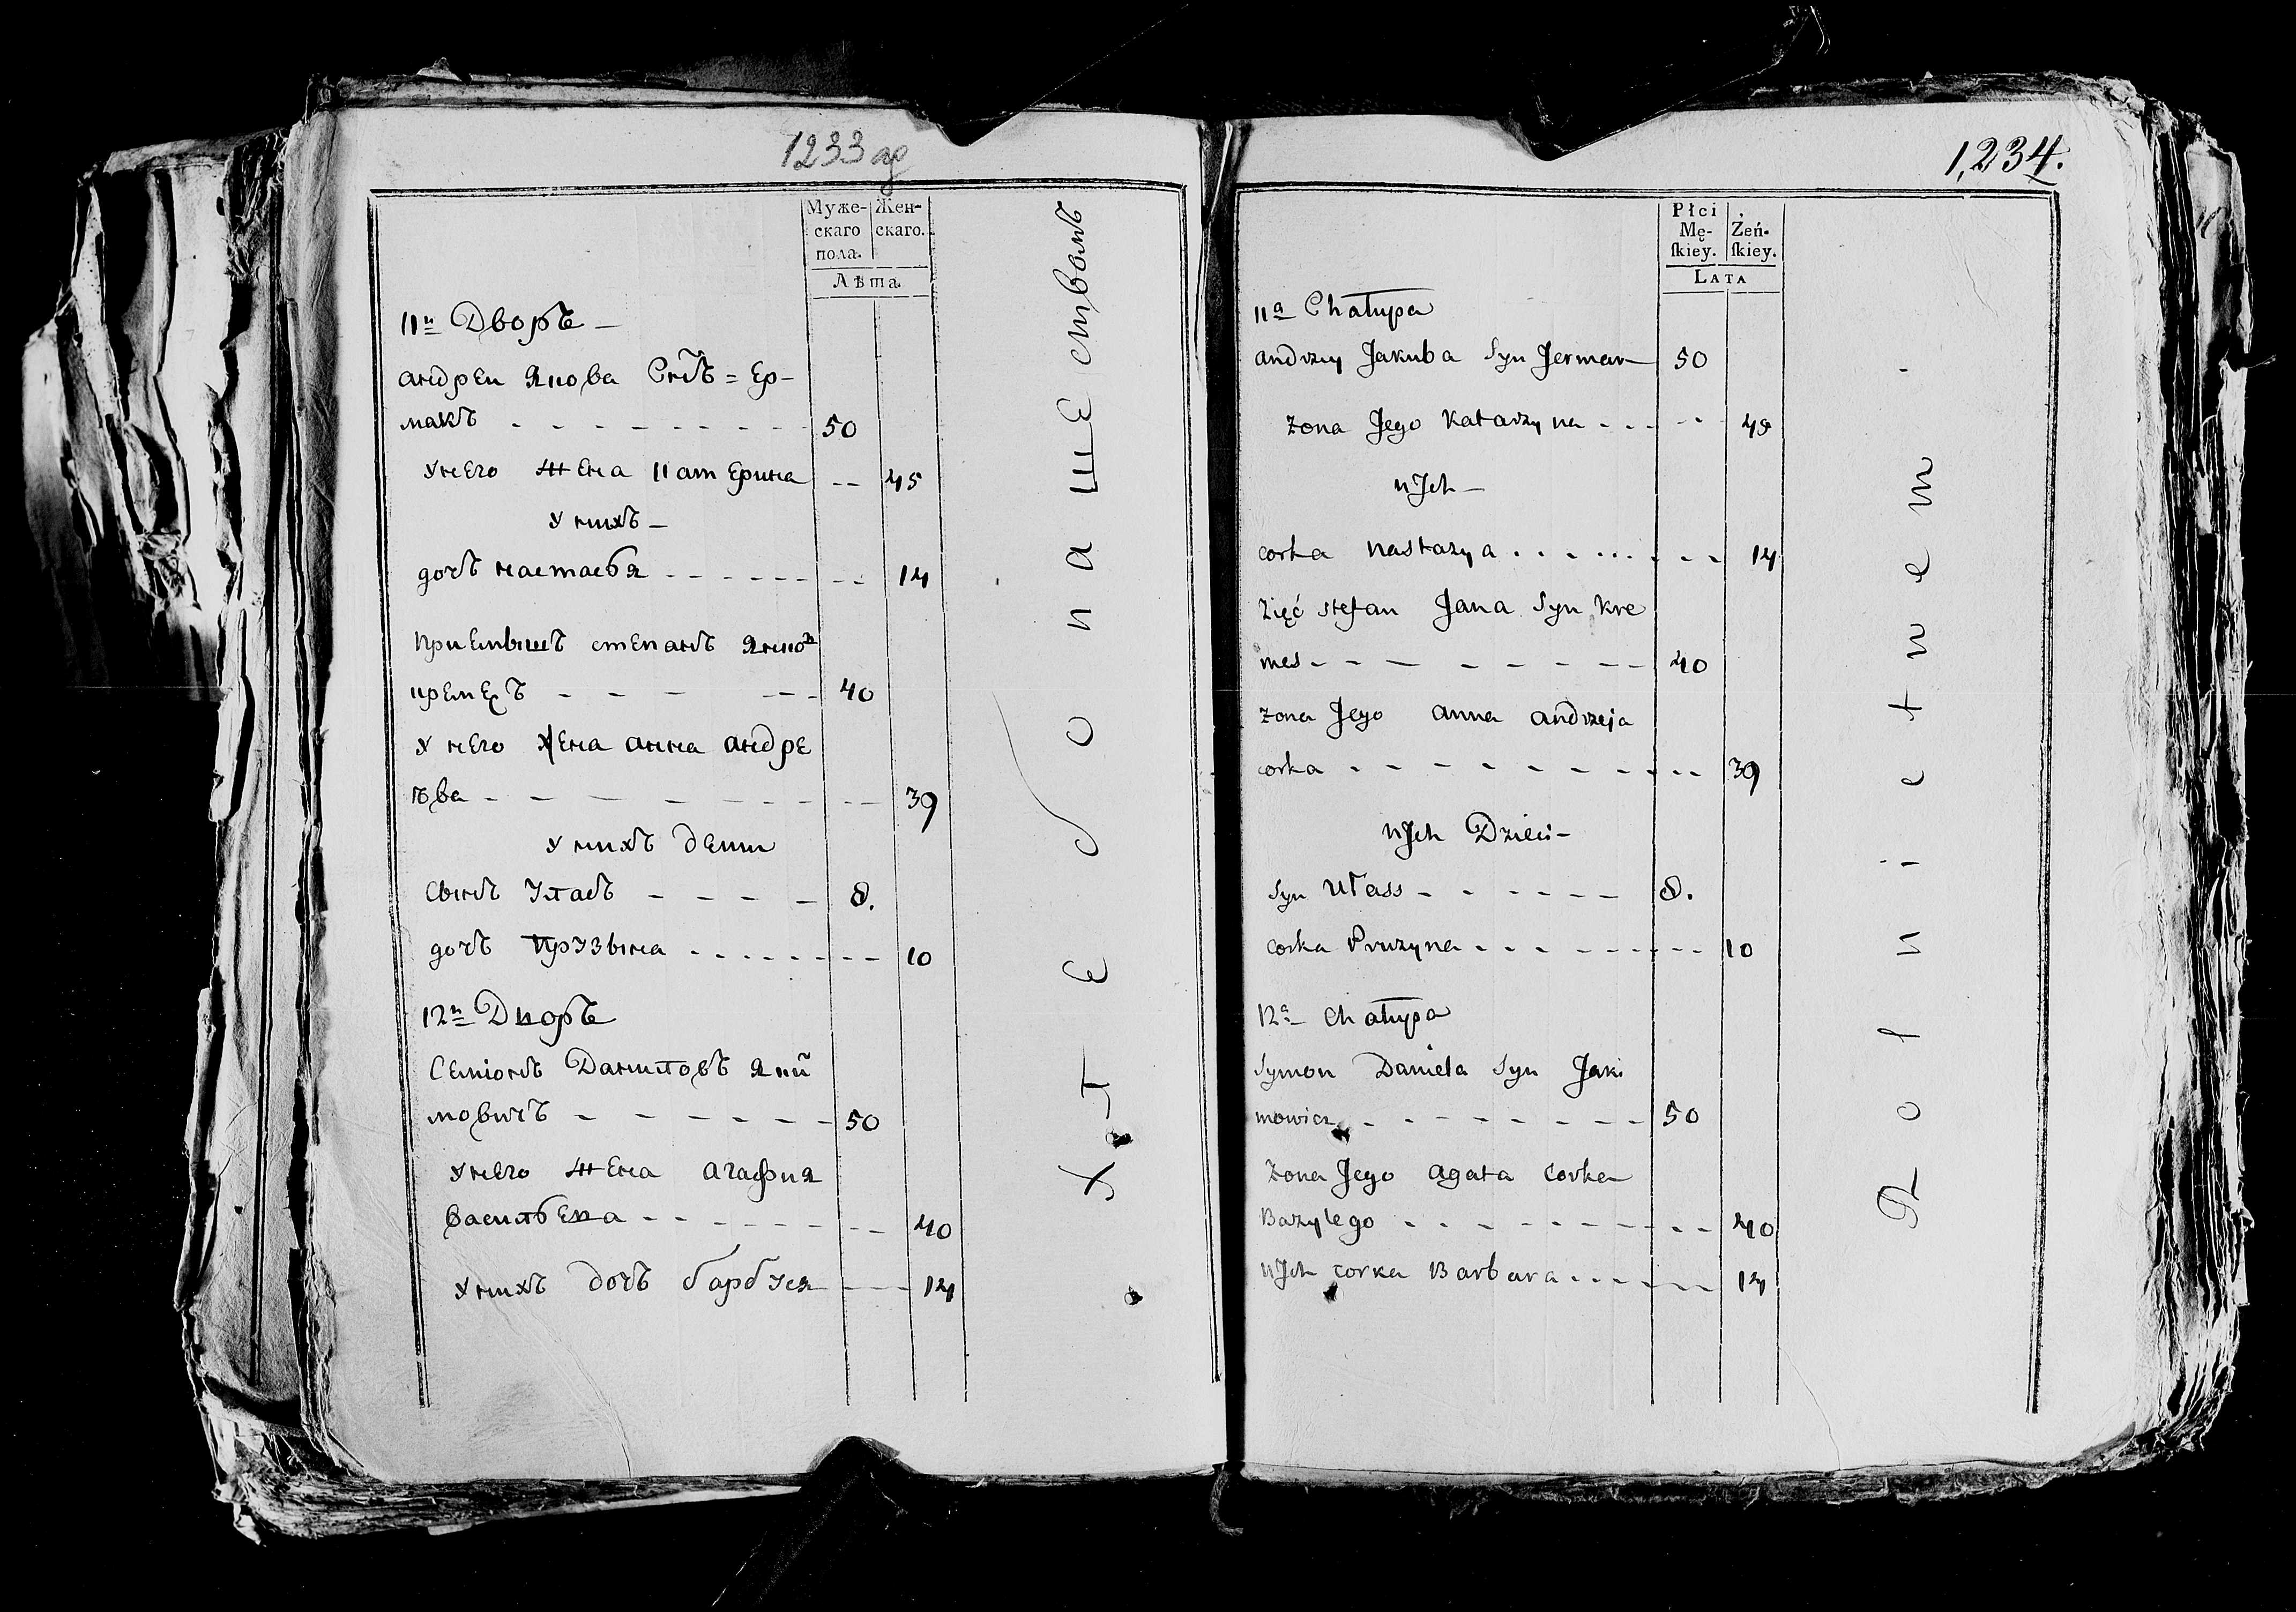 1233 др
Муже-
скаго
пола.
Жен-
скаго.
Лѣта.
11й Дворъ —
андреи Якова Снъ = Ер-
макъ - - - - - - - - - 50
У него жена Катерина -- 45
У нихъ —
дочь настасья - - - - - - -- 14
приемышъ степанъ Янко
кремеръ - - - - -- 40
У него жена анна андре
ѣва - - - - - - - -- 39
У нихъ дети
сынъ Уласъ - - - - 8.
дочь прузына - - - - - - - -- 10
12й Дворъ
Семіонъ Даниловъ Яки
мовичъ - - - - - - 50
У него жена агафия
васильева - - - - - - -- 40
У нихъ дочь барбуся - - 14
Хлебопашествомъ
1,234.
Płci
Mę-
ſkiey.
Żeń-
ſkiey.
LATA
11a Chałupa
andrzey Jakuba Syn Jermak 50
żona Jego Katarzyna - - - - - 45
u Jch —
corka nastazya - - - - - - - - 14
Zięć stefan Jana Syn Kre
mes - - - - - - - -- 40
żona Jego anna andrzeja
corka - - - - - - - - - -- 39
u Jch Dzieci —
Syn Ułass - - - - - - 8.
corka Pruzyna - - - - - - - -- 10
12a Chałupa
Symon Daniela Syn Jaki
mowicz - - - - - - - 50
żona Jego agata corka
Bazylego - - - - - - - - -- 40
u Jch corka Barbara - - - - -- 14
Rolnictwem